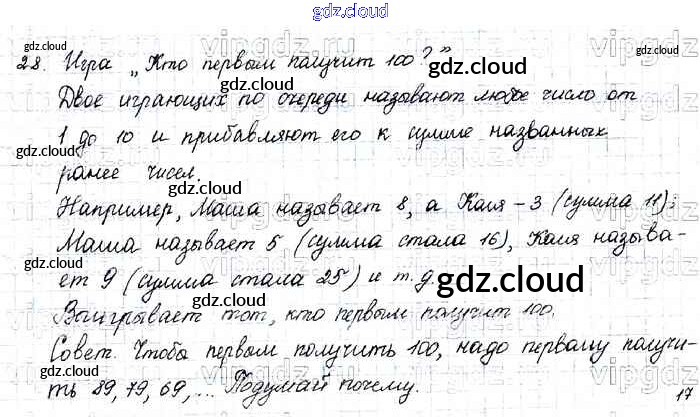 gdz.cloud
28. Игра „Кто первым получит 100?”
gdz.cloud gdz.cloud
Двое играющих по очереди называют любое число от
1 до 10 и прибавляют его к сумме названных
gdz.cloud gdz.cloud
ранее чисел.
gdz.cloud
Например, Маша называет 8, а Коля – 3 (сумма 11);
Маша называет 5 (сумма стала 16), Коля называ-
ет 9 (сумма стала 25) и т.д.
gdz.cloud gdz.cloud
Выигрывает тот, кто первым получит 100.
gdz.cloud gdz.cloud
Совет. Чтобы первым получить 100, надо первому получи-
ть 89, 79, 69, ... Подумай почему.
gdz.cloud
17